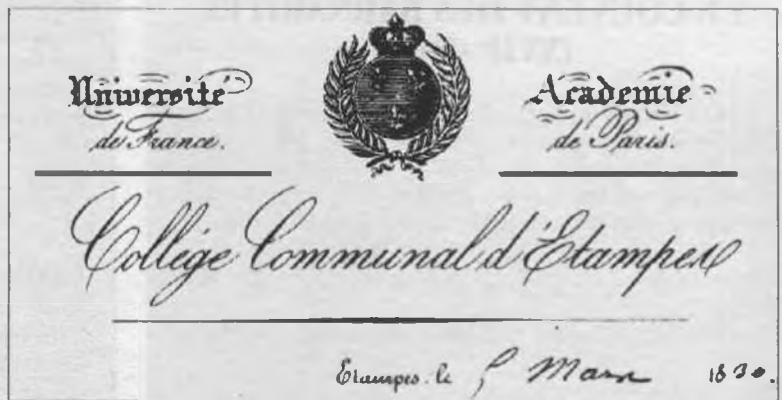 Université
de France.
Académie
de Paris.
Collége Communal d'Etampes
Etampes. le 5 Mars 1830.